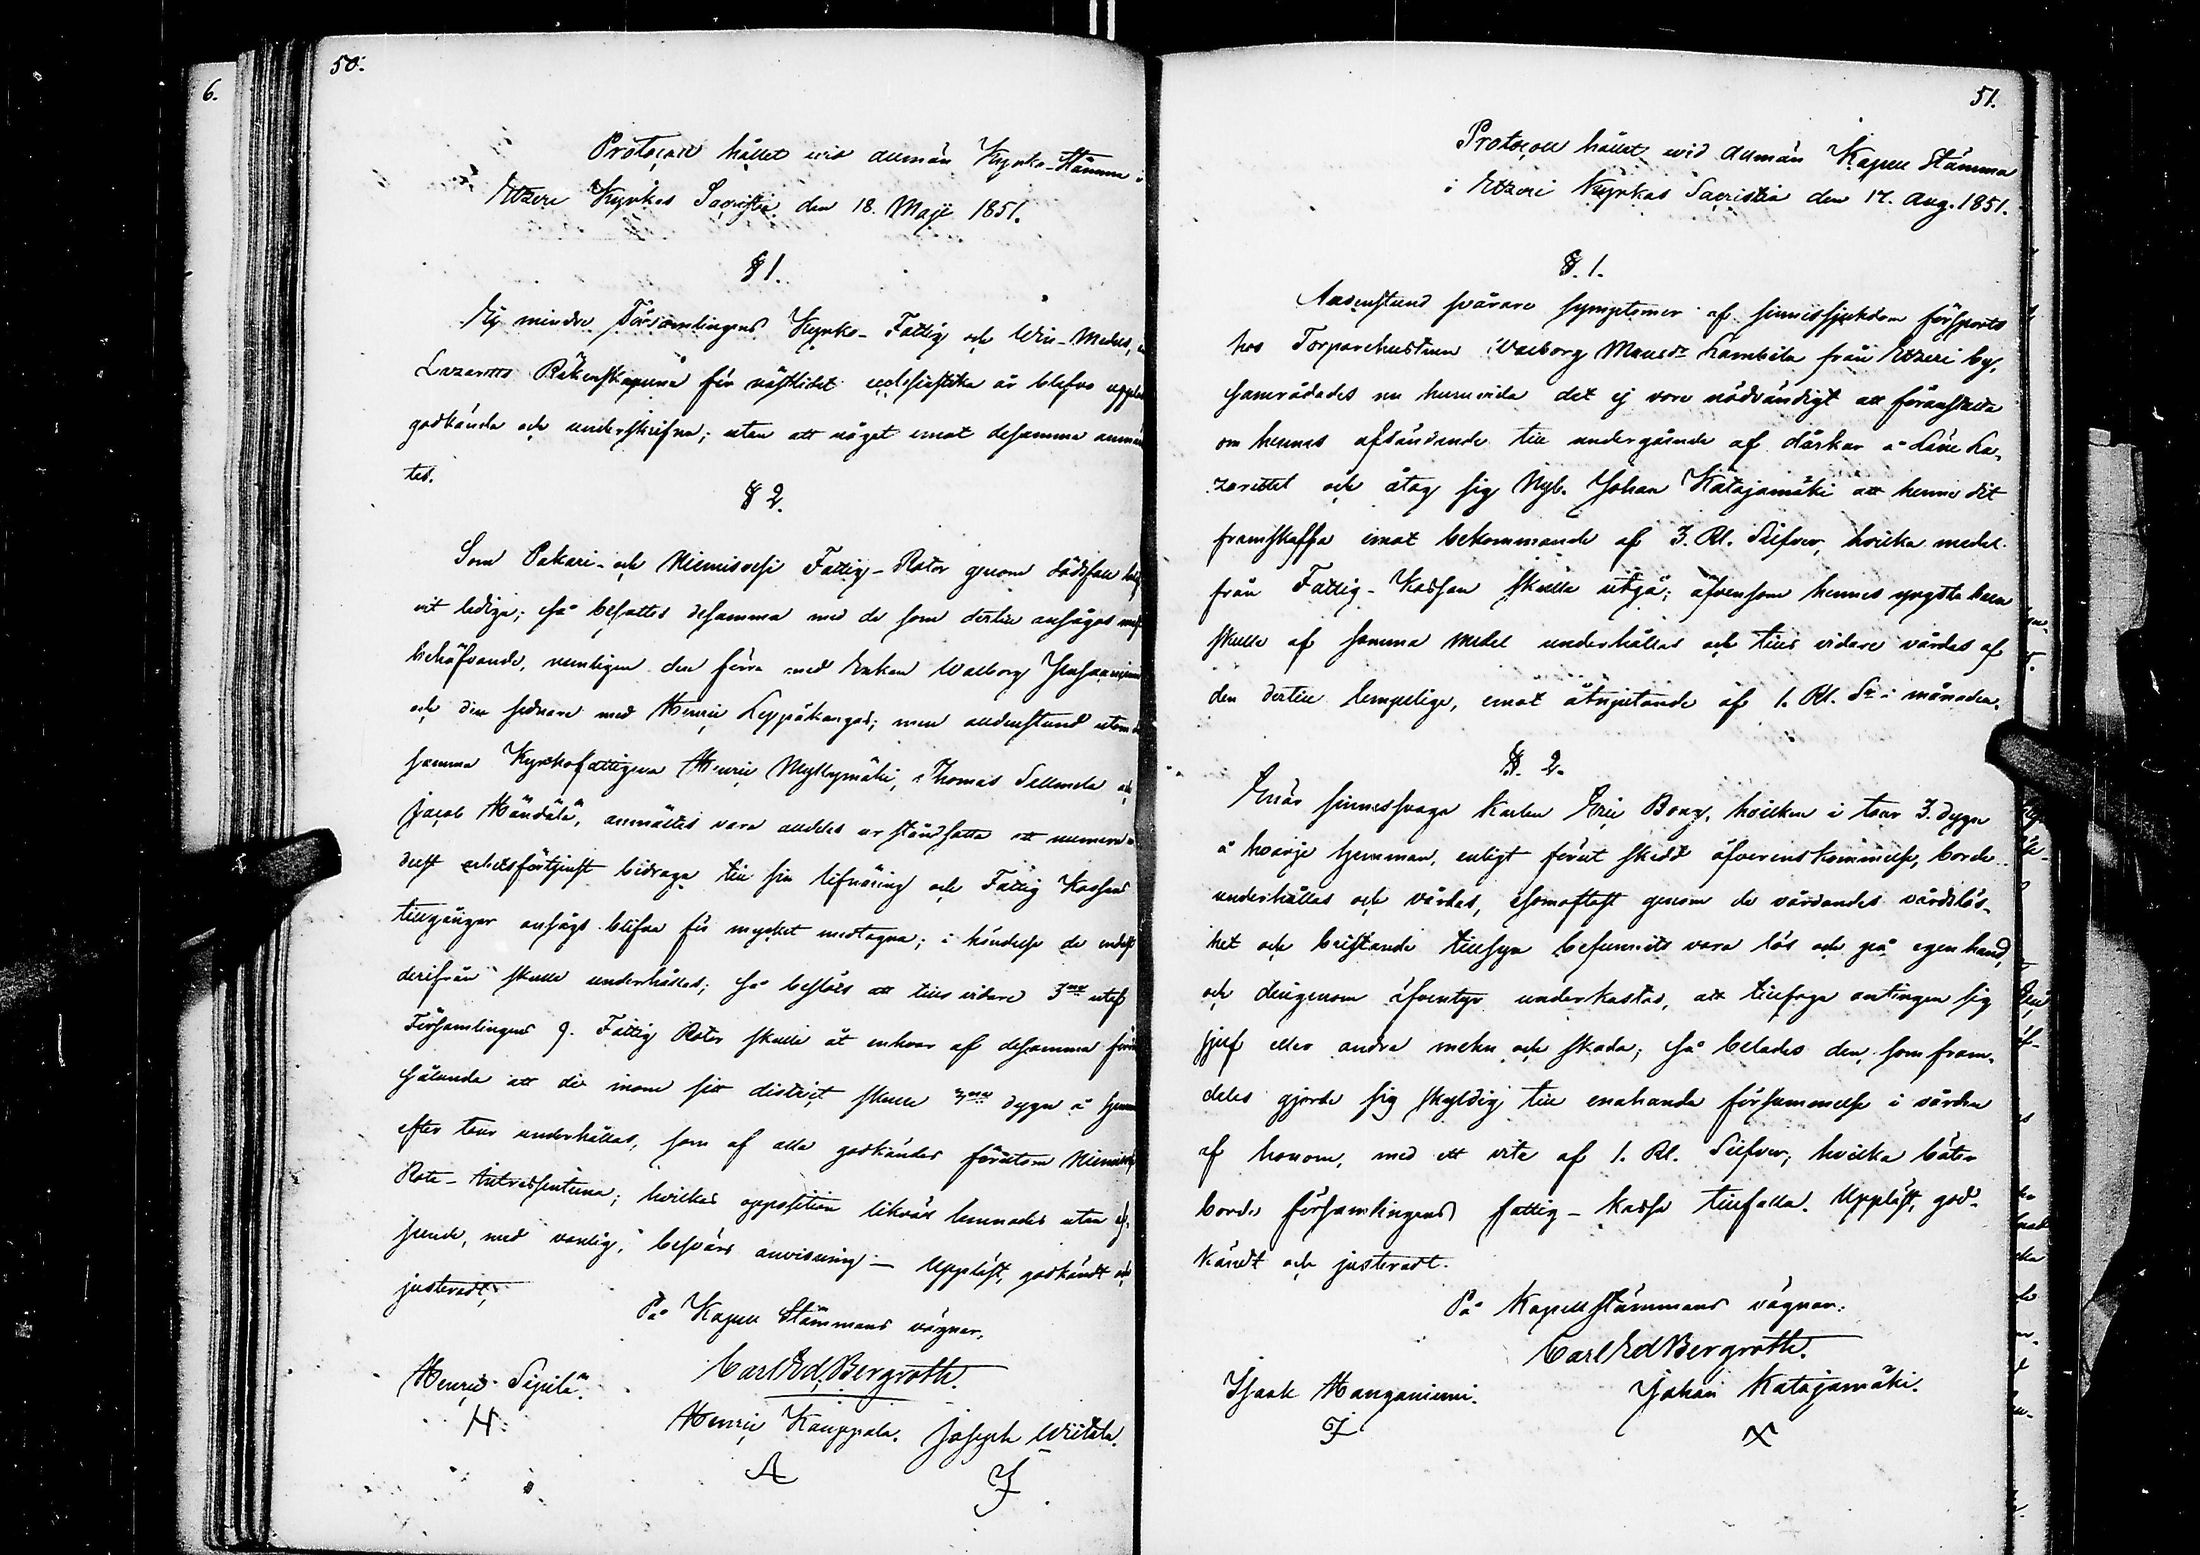 50.
Protocoll hållet wid allmän Kyrko-Stämma i
Etzeri Kyrkas Sacristia den 18. Maji 1851.
§ 1.
Ej mindre Församlingens Kyrko- Fattig och Win-Medels,
Lazaretts Räkenskaperna för nästlidet ecclesiastika år blefvo
godkända och underskrifna; utan att något emot desamma
tes.
§ 2.
Som Pakari- och Niemisvesi Fattig-Rotor genom dödsfall
vit lediga; så besattes desamma med de som dertill ansågos
behöfvande, nemligen den förra med Enkan Walborg
och den sednare med Henric Leppäkangas; men
samma Kyrkofattigena Henric Myllymäki, Thomas Sillinda
Jacob Händälä, anmältes vara alldeles ur stånd satta att
arbetsförtjenst bidraga till sin lifnäring och Fattig Kassans
tillgångar ansågs blifva för mycket medtagna; i händelse de endast
derifrån skulle underhållas; så beslöts att tills vidare 3ne utaf
Församlingens 9. Fattig Rotor skulle åt enhvar af desamma
sålunda att de inom sitt district skulle dygn å
efter tour underhållas, som af alla godkändes förutom
Rote-Intressenterna; hvilkas opposition likväl lemnades utan
seende, med vanlig besvärs anvisning — Uppläst, godkändt och
justeradt,
På Kapell Stämmans vägnar,
Carl Ed. Bergroth.
Henric Sipilä.
H
Henric Kauppala. Joseph Wiitala.
A J
51.
Protocoll hållet wid allmän Kapell Stämma
i Etzeri Kyrkas Sacristia den 17. Aug. 1851.
§. 1.
Aldenstund svårare symptomer af sinnessjukdom försports
hos Torparehustrun Walborg Mansdr. från Etzeri by,
samrådades nu huruvida det ej vore nödvändigt att föranstalta
om hennes afsändande till undergående af dårkur å Läne La-
zarettet och åtog sig Nyb. Johan Katajamäki att henne dit
framskaffa emot bekommande af 3. Rl. Silfver, hvilka medel
från Fattig-Kassan skulle utgå; äfvensom hennes yngsta barn
skulle af samma medel underhållas och tills vidare vårdas af
den dertill lempelige, emot åtnjutande af 1. Rl. Sr i månaden.
§. 2.
Enär sinnessvaga Karlen Eric Bong, hvilken i tour 3. dygn
å hvarje hemman, enligt förut skedd öfverenskommelse, borde
underhållas och vårdas, esomoftast genom de vårdandes vårdslös-
het och bristande tillsyn befunnits vara lös och på egen hand,
och derigenom äfventyr underkastas, att tillfoga antingen sig
sjelf eller andra mehn och skada; så belades den, som fram-
deles gjorde sig skyldig till enahanda försummelse i vården
af honom, med ett vite af 1. Rl. Silfver, hvilka böter
borde församlingens fattig-kassa tillfalla. Uppläst, god-
kändt och justeradt.
På Kapellstämmans vägnar:
Carl Ed Bergroth.
Isaak Hanganiemi. Johan Katajamäki.
J X
6.